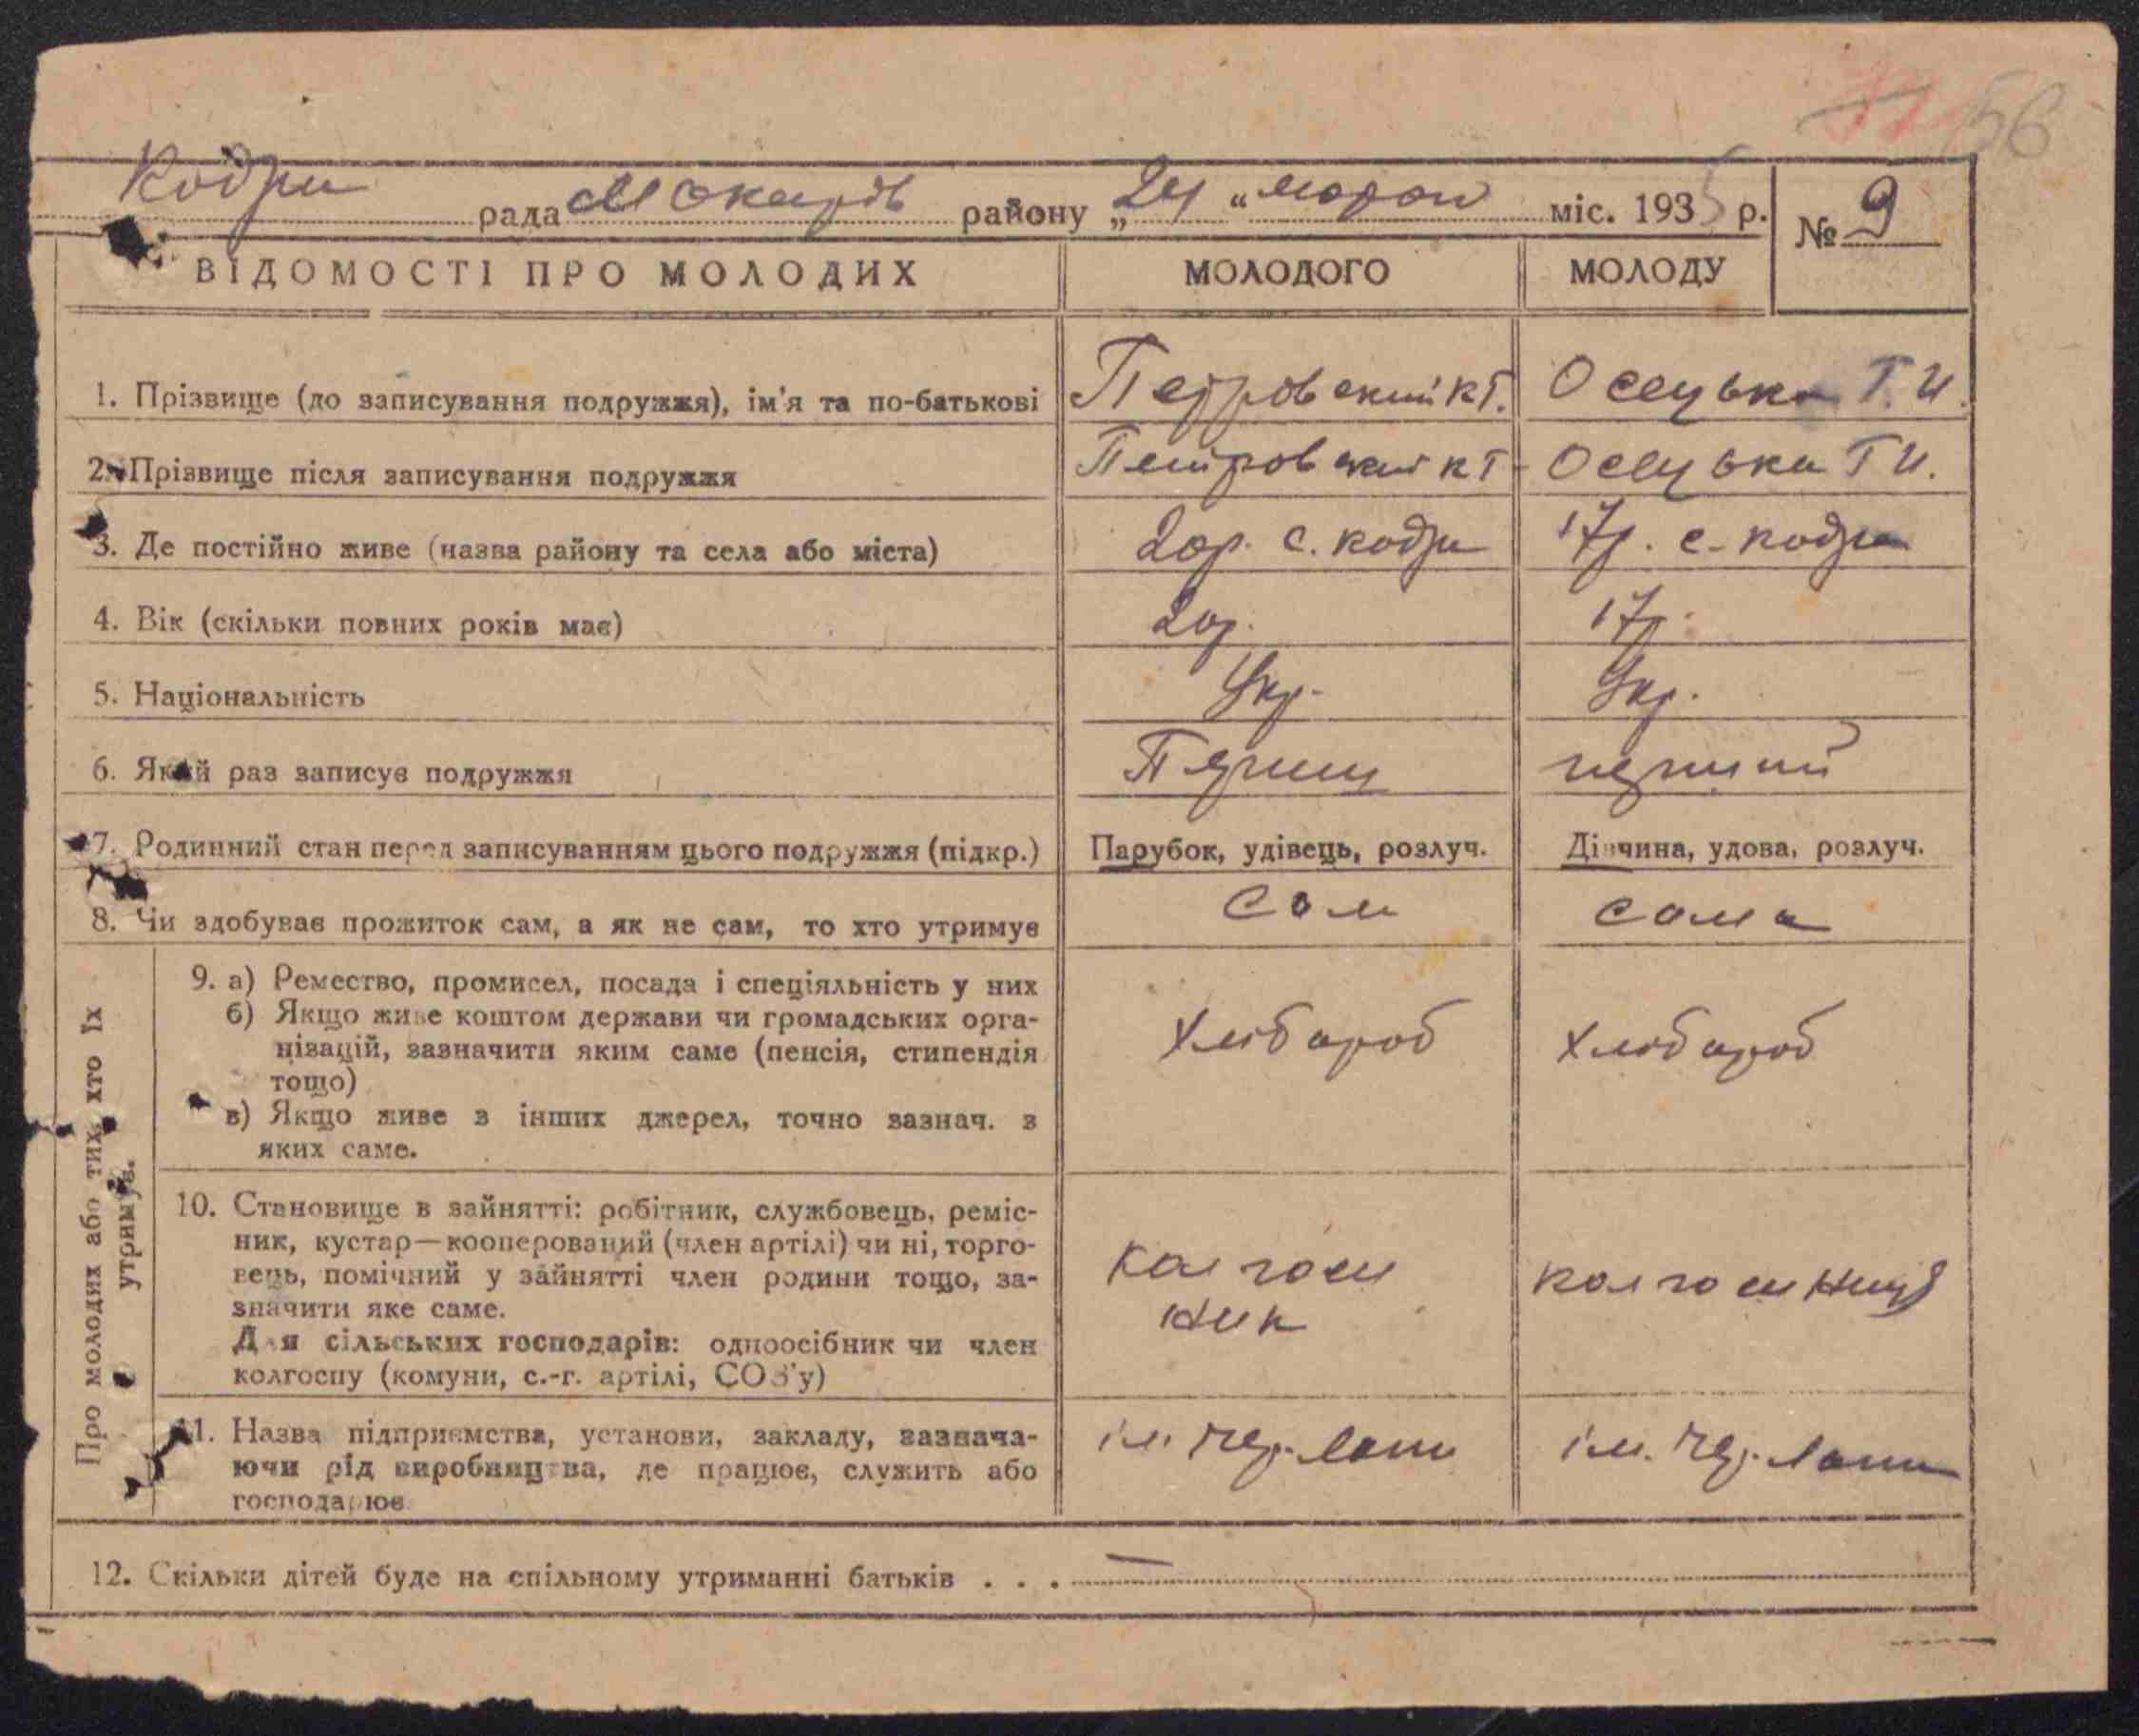 56
Кодри рада Макарів району „24“ марта міс. 1935 р. № 9
ВІДОМОСТІ ПРО МОЛОДИХ МОЛОДОГО МОЛОДУ
1. Прізвище (до записування подружжя), ім'я та по-батькові Петровский К Г. Осецька Г. И.
2. Прізвище після записування подружжя Петровский К Г Осецька Г И.
3. Де постійно живе (назва району та села або міста) 20р. с. кодри 17р. с. кодри
4. Вік (скільки повних років має) 20р. 17р.
5. Національність Укр. Укр.
6. Який раз записує подружжя Перший перший
7. Родинний стан перед записуванням цього подружжя (підкр.) Парубок, удівець, розлуч. Дівчина, удова, розлуч.
8. Чи здобуває прожиток сам, а як не сам, то хто утримує сам сама
Про молодих або тих, хто їх
утримує.
9. а) Ремество, промисел, посада і спеціяльність у них
б) Якщо живе коштом держави чи громадських орга-
нізацій, зазначити яким саме (пенсія, стипендія
тощо)
в) Якщо живе з інших джерел, точно зазнач. з
яких саме.
хлібароб хлібароб
10. Становище в зайнятті: робітник, службовець, реміс-
ник, кустар—кооперований (член артілі) чи ні, торго-
вець, помічний у зайнятті член родини тощо, за-
значити яке саме.
Для сільських господарів: одноосібник чи член
колгоспу (комуни, с.-г. артілі, СОЗ'у)
колгосп
ник
колгоспниця
11. Назва підприємства, установи, закладу, зазнача-
ючи рід виробництва, де працює, служить або
господарює.
ім. чер. лани ім. чер. лани
12. Скільки дітей буде на спільному утриманні батьків . . . —